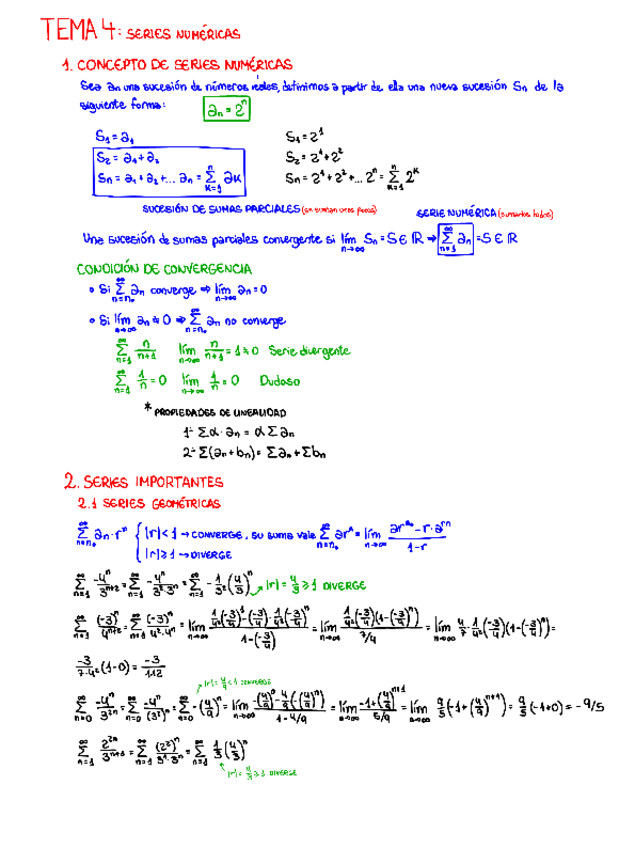 TEMA 4: SERIES NUMÉRICAS
1. CONCEPTO DE SERIES NUMÉRICAS
Sea an una sucesión de números reales, definimos a partir de ella una nueva sucesión Sn de la
siguiente forma: an = 2^n
S1 = a1    S1 = 2^1
S2 = a1 + a2    S2 = 2^1 + 2^2
Sn = a1 + a2 + ... an = ∑_{k=1}^{n} ak    Sn = 2^1 + 2^2 + ... 2^n = ∑_{k=1}^{n} 2^k
SUCESIÓN DE SUMAS PARCIALES (se suman unos pocos)    SERIE NUMÉRICA (sumarlos todos)
Una sucesión de sumas parciales convergente si lím_{n→∞} Sn = S ∈ ℝ ⇒ ∑_{n=1}^{∞} an = S ∈ ℝ
CONDICIÓN DE CONVERGENCIA
• Si ∑_{n=n0}^{∞} an converge ⇒ lím_{n→∞} an = 0
• Si lím_{n→∞} an ≠ 0 ⇒ ∑_{n=n0}^{∞} an no converge
∑_{n=1}^{∞} n/(n+1)    lím_{n→∞} n/(n+1) = 1 ≠ 0 Serie divergente
∑_{n=1}^{∞} 1/n = 0    lím_{n→∞} 1/n = 0    Dudoso
* PROPIEDADES DE LINEALIDAD
1- ∑α · an = α ∑ an
2- ∑(an + bn) = ∑an + ∑bn
2. SERIES IMPORTANTES
2.1 SERIES GEOMÉTRICAS
∑_{n=n0}^{∞} an · r^n { |r| < 1 → CONVERGE, su suma vale ∑_{n=n0}^{∞} ar^n = lím_{n→∞} (ar^{n0} - r · a^{rn})/(1-r)
|r| ≥ 1 → DIVERGE
∑_{n=1}^{∞} -4^n/3^{n+2} = ∑_{n=1}^{∞} -4^n/(3^2·3^n) = ∑_{n=1}^{∞} -1/3^2 (4/3)^n → |r| = 4/3 ≥ 1 DIVERGE
∑_{n=1}^{∞} (-3)^n/4^{n+2} = ∑_{n=1}^{∞} (-3)^n/(4^2·4^n) = lím_{n→∞} (1/4^2(-3/4)^1 - (-3/4) · 1/4^2(-3/4)^n)/(1-(-3/4)) = lím_{n→∞} (1/4^2(-3/4)(1-(-3/4)^n))/(7/4) = lím_{n→∞} 4/7 · 1/4^2 (-3/4)(1-(-3/4)^n) =
-3/(7·4^2) (1-0) = -3/112
→ |r| = 4/9 < 1 CONVERGE
∑_{n=0}^{∞} -4^n/3^{2n} = ∑_{n=0}^{∞} -4^n/(3^2)^n = ∑_{n=0}^{∞} -(4/9)^n = lím_{n→∞} (-(4/9)^0 - 4/9(-(4/9)^n))/(1-4/9) = lím_{n→∞} (-1+(4/9)^{n+1})/(5/9) = lím_{n→∞} 9/5 (-1+(4/9)^{n+1}) = 9/5 (-1+0) = -9/5
∑_{n=1}^{∞} 2^{2n}/3^{n+1} = ∑_{n=1}^{∞} (2^2)^n/(3^1·3^n) = ∑_{n=1}^{∞} 1/3 (4/3)^n
|r| = 4/3 ≥ 1 DIVERGE